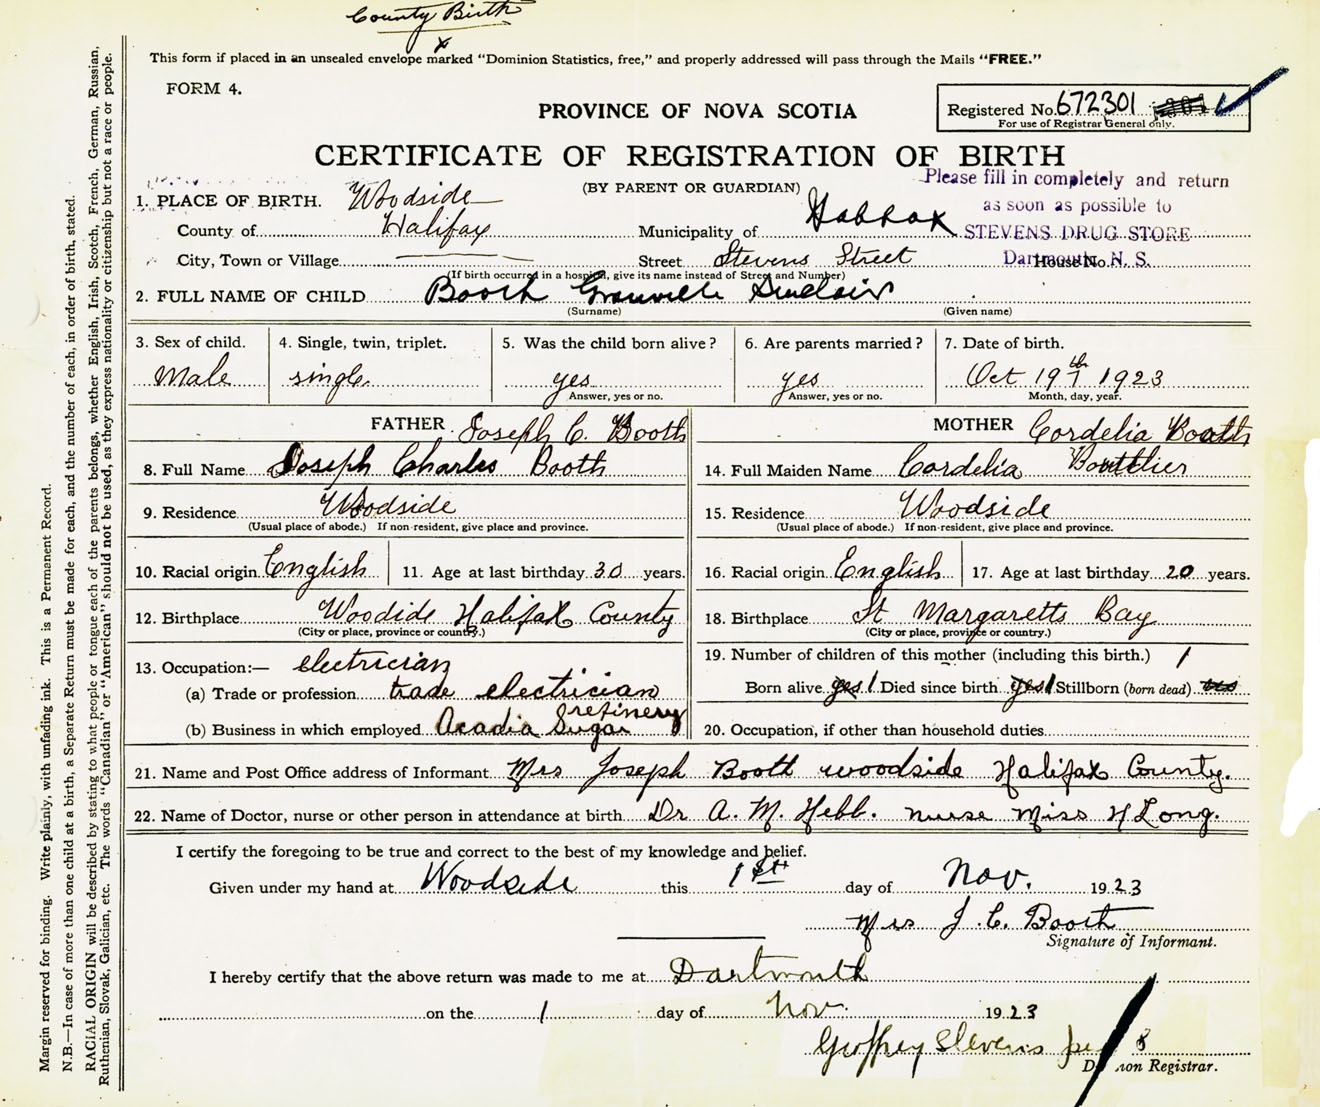 County Birth
x
This form if placed in an unsealed envelope marked "Dominion Statistics, free," and properly addressed will pass through the Mails "FREE."
FORM 4.
PROVINCE OF NOVA SCOTIA
Registered No. 672301
For use of Registrar General only.
CERTIFICATE OF REGISTRATION OF BIRTH
(BY PARENT OR GUARDIAN)
Please fill in completely and return
as soon as possible to
STEVENS DRUG STORE
Dartmouth, N. S.
1. PLACE OF BIRTH. Woodside
County of Halifax Municipality of Halifax
City, Town or Village Street Stevens Street House No.
(If birth occurred in a hospital, give its name instead of Street and Number)
2. FULL NAME OF CHILD Booth Granville Sinclair
(Surname) (Given name)
3. Sex of child. 4. Single, twin, triplet. 5. Was the child born alive? 6. Are parents married? 7. Date of birth.
Male single yes yes Oct 19th 1923
Answer, yes or no. Answer, yes or no. Month, day, year.
FATHER Joseph C. Booth
8. Full Name Joseph Charles Booth
9. Residence Woodside
(Usual place of abode.) If non-resident, give place and province.
10. Racial origin English 11. Age at last birthday 30 years.
12. Birthplace Woodide Halifax County
(City or place, province or country.)
13. Occupation:— electrician
(a) Trade or profession trade electrician
(b) Business in which employed Acadia Sugar refinery
MOTHER Cordelia Booth
14. Full Maiden Name Cordelia Boutlier
15. Residence Woodside
(Usual place of abode.) If non-resident, give place and province.
16. Racial origin English 17. Age at last birthday 20 years.
18. Birthplace St Margaretts Bay
(City or place, province or country.)
19. Number of children of this mother (including this birth.) 1
Born alive yes 1 Died since birth yes 1 Stillborn (born dead)
20. Occupation, if other than household duties
21. Name and Post Office address of Informant Mrs Joseph Booth woodside Halifax County.
22. Name of Doctor, nurse or other person in attendance at birth Dr A. M. Hebb. nurse Miss H Long.
I certify the foregoing to be true and correct to the best of my knowledge and belief.
Given under my hand at Woodside this 1st day of Nov. 1923
Mrs J. C. Booth
Signature of Informant.
I hereby certify that the above return was made to me at Dartmouth
on the 1 day of Nov. 1923
Geoffrey Stevens per
Registrar.
Margin reserved for binding. Write plainly, with unfading ink. This is a Permanent Record.
N.B.—In case of more than one child at a birth, a Separate Return must be made for each, and the number of each, in order of birth, stated.
RACIAL ORIGIN will be described by stating to what people or tongue each of the parents belongs, whether English, Irish, Scotch, French, German, Russian,
Ruthenian, Slovak, Galician, etc. The words "Canadian" or "American" should not be used, as they express nationality or citizenship but not a race or people.